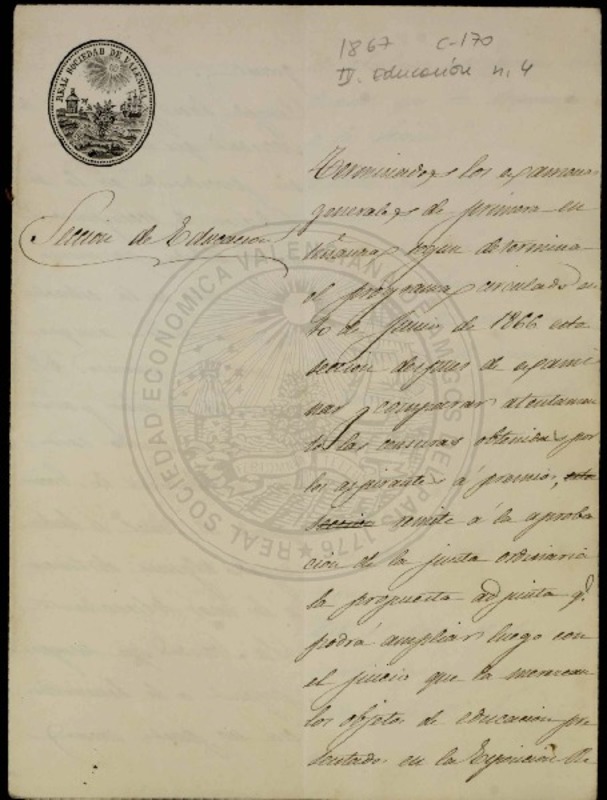 1867 C-170
IV. Educación n. 4
REAL SOCIEDAD DE VALENCIA
Seccion de Educacion
Terminados los examenes
generales de primera en
señanza segun determina
el programa circulado en
10 de Junio de 1866 esta
seccion despues de exami
nar y comparar atentamen
te las censuras obtenidas por
los aspirantes á premio, esta
seccion remite á la aproba
cion de la junta ordinaria
la propuesta adjunta q.e
podrá ampliar luego con
el juicio que la merezcan
los objetos de educacion pre
sentados en la Exposicion Re
REAL SOCIEDAD ECONOMICA VALENCIANA DE AMIGOS DEL PAIS 1776